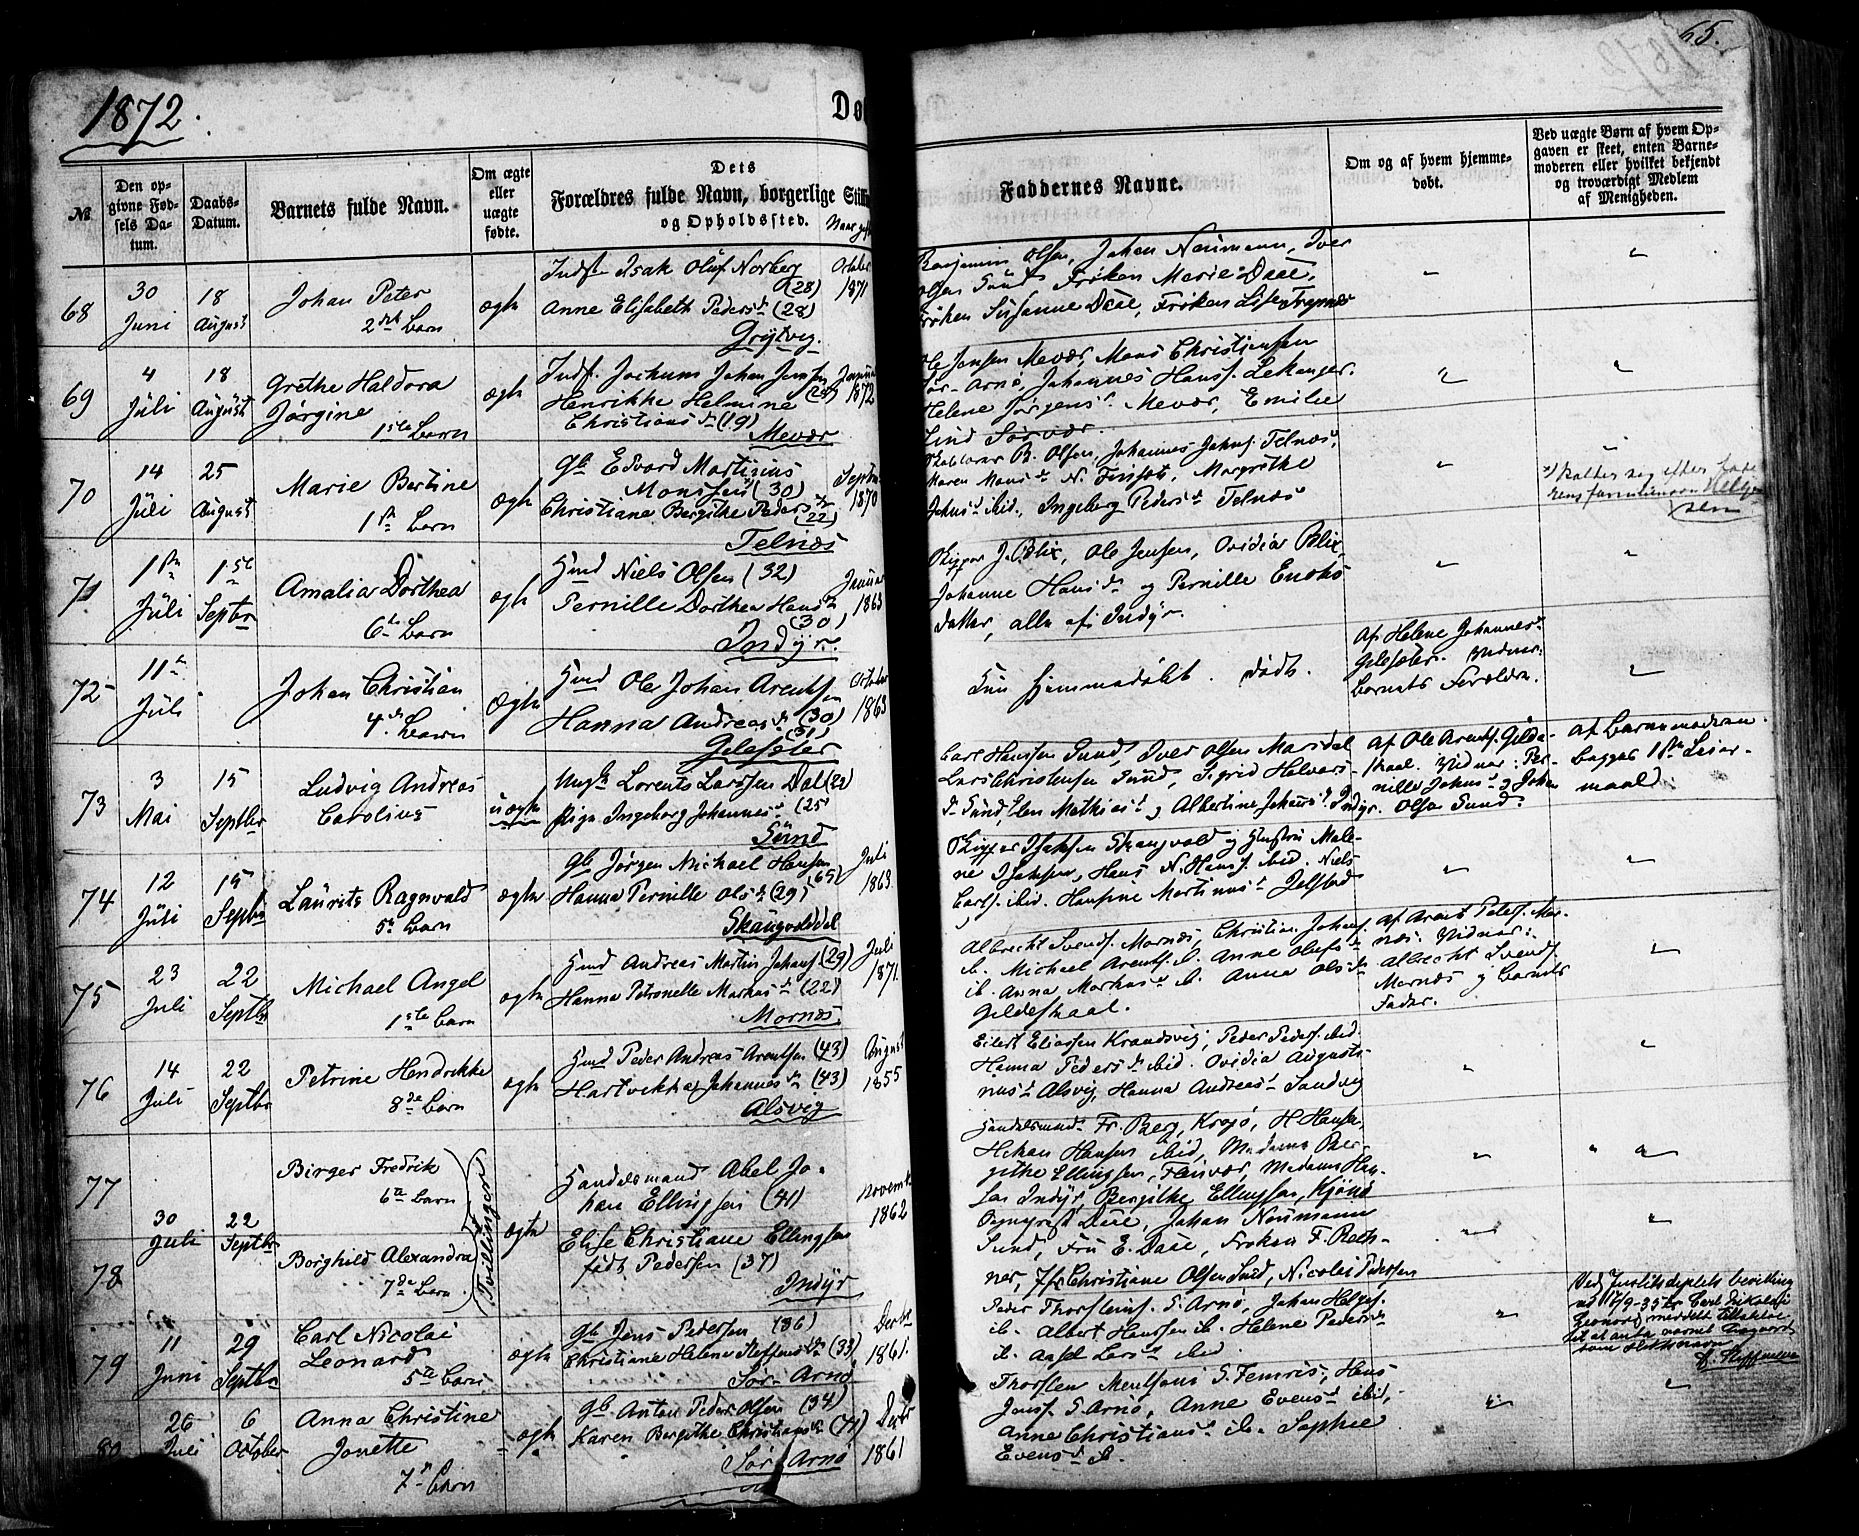 1872.
65.
Dø
№
Den op-
givne Fød-
sels Da-
tum.
Daabs-
Datum.
Barnets fulde Navn.
Om ægte
eller
uægte
fødte.
Dets
Forældres fulde Navn, borgerlige Stilli
og Opholdssted.
Faddernes Navne.
Om og af hvem hjemme-
døbt.
Ved uægte Børn af hvem Op-
gaven er skeet, enten Barne-
moderen eller hvilket bekjendt
og troværdigt Medlem
af Menigheden.
68
30
Juni
18
August
Johan Peter
2det Barn
ægte
Inds. Isak Oluf Norberg
(28)
Anne Elisabeth Pedersd. (28)
Grytvig.
October
1871
Benjamin Olsen, Johan Naumann, Iver
Olsen Sund, Frøken Marie Daae,
Frøken Susanne Daae, Frøken Lise
69
4
Juli
18
August
Grethe Haldora
Jørgine
1ste Barn
ægte
Inds. Jochum Johan Jensen
Henrikke Helmine
Christiansd. (19)
Mevær
Januar
1872
Ole Jensen Mevær, Mons Christiansen
Sør-Arnø, Johannes Hans. Lekanger.
Helene Jørgensd. Mevær, Emilie
Lind Sørvær.
70
14
Juli
25
August
Marie Bertine
1ste Barn
ægte
Gb. Edvard Martinius
Monssen (30)
Christiane Bergithe Pedersd.
(22)
Telnæs
Septbr
1870
B. Olsen, Johannes Johns. Telnæs,
Maren Monsd. N. Finset, Margrethe
Johnsd. ibid., Ingeborg Pedersd. Telnæs
71
1ste
Juli
1ste
Septbr
Amalia Dorthea
6te Barn
ægte
Gmd Niels Olsen (32)
Pernille Dorthea Hansd.
(30)
Indyr.
Januar
1863
Skipper J. Blix, Ole Jensen, Ovidia Blix,
Johanne Hansd. og Pernille Enoks
datter, alle af Indyr.
72
11te
Juli
Johan Christian
4de Barn
Ægte
Gmd Ole Johan Arentsen
Hanna Andreasd. (30)
(31)
Gilesøter
October
1863
Kun hjemmedøbt. Død.
Af Helene Johannesd.
Gilesøter. Vidner:
Barnets Forældre.
73
3
Mai
15
Septbr
Ludvig Andreas
Carolius
uægte
Ungk. Lorents Larssen Dal (22
Pige Ingeborg Johannesd. (25)
Sund
Carl Hansen Sund, Iver Olsen Marsdal
Lars Christensen Sund, Sigrid Halvors-
d. Sund, Elen Mathiasd. og Albertine Johansd. Indyr.
Af Ole Arents. Gilde-
skaal. Vidner: Per-
nille Johnsd. og Johan
Olsen Sund.
Af Barnemoderen.
begges 1ste Leier-
maal
74
12
Juli
15
Septbr
Laurits Ragnvald
5te Barn
ægte
Gb. Jørgen Michael Hansen
(65)
Hanna Pernille Olsd. (29)
Skaugvolddal
Juli
1863
Skipper Isaksen Skaugvold og Hustru Male-
ne Isaksen, Hans N. Hans. ibid. Niels
Carls. ibid. Hansine Martinusd. Jelstad
75
23
Juli
22
Septbr
Michael Angel
1ste Barn
ægte
Gmd Andreas Martin Johans. (29)
Hanna Petronelle Markusd. (22)
Mornæs
Juli
1871.
Albrecht Svends. Mornæs, Christian Johans.
ib. Michael Arents. ib. Anne Olufsd.
ib. Anna Markusd. ib. Anna Olsd.
Gildeskaal.
Af Arent Peders. Mor-
næs. Vidner:
Albrecht Svends.
Mornæs og Barnets
Fader.
76
14
Juli
22
Septbr
Petrine Hendrikke
8de Barn
ægte
Gmd Peder Andreas Arentsen (43)
Hartvikka Johannesd. (43)
Alsvig
August
1855
Eilert Eliasen Krandsvig, Peder Peders. ibid.
Hanna Pedersd. ibid. Ovidia Augusti-
nusd. Alsvig, Hanna Andreasd. Sandvig
77
30
Juli
22
Septbr
Birger Fredrik
6te Barn
(Tvillinger)
ægte
Handelsmand Abel Jo-
han Ellingsen (41)
Elise Christiane Ellingsen
født Pedersen (37)
Indyr
Novemb
1862
78
Borghild Alexandra
7de Barn
Handelsmand Fr. Berg, Krogø, H. Hansen,
Hekan Hansen ibid, Madame Ber-
githe Ellingsen, Fleinvær, Madame Han-
sen Indyr, Bergithe Ellingsen, Kjønø
Daae, Johan Naumann
Sund, Fru E. Daae, Frøken F. Rath-
ner, Jfr Christiane Olsen Sund, Nicolai Pedersen
79
11
Juni
29
Septbr
Carl Nicolai
Leonard
5te Barn
ægte
Gb. Jens Pedersen (36)
Christiane Helena Steffensd. (33)
Sør-Arnø
Decbr
1861.
Peder Thorsteins. S. Arnø, Johan Helges.
ib. Albert Hanssen ib. Helene Pedersd.
ib. Larsd. ibid.
Ved Justitsdeptets bevilling
9-35 er Carl Nikolai
Leonard meddelt tilladelse
til at anta navnet
som slektsnavn
80
26
Juli
6
October
Anna Christine
Jonette
7de Barn
ægte
Gb. Anton Peder Olsen (34)
Karen Bergithe Christiansd. (41)
Sør Arnø
Decbr
1861
Thorsten Mentsons. S. Femris, Hans
Jens. S. Arnø, Anne Evensd. ibid,
Anne Christiansd. ib. Sophie
Evensd. ib.